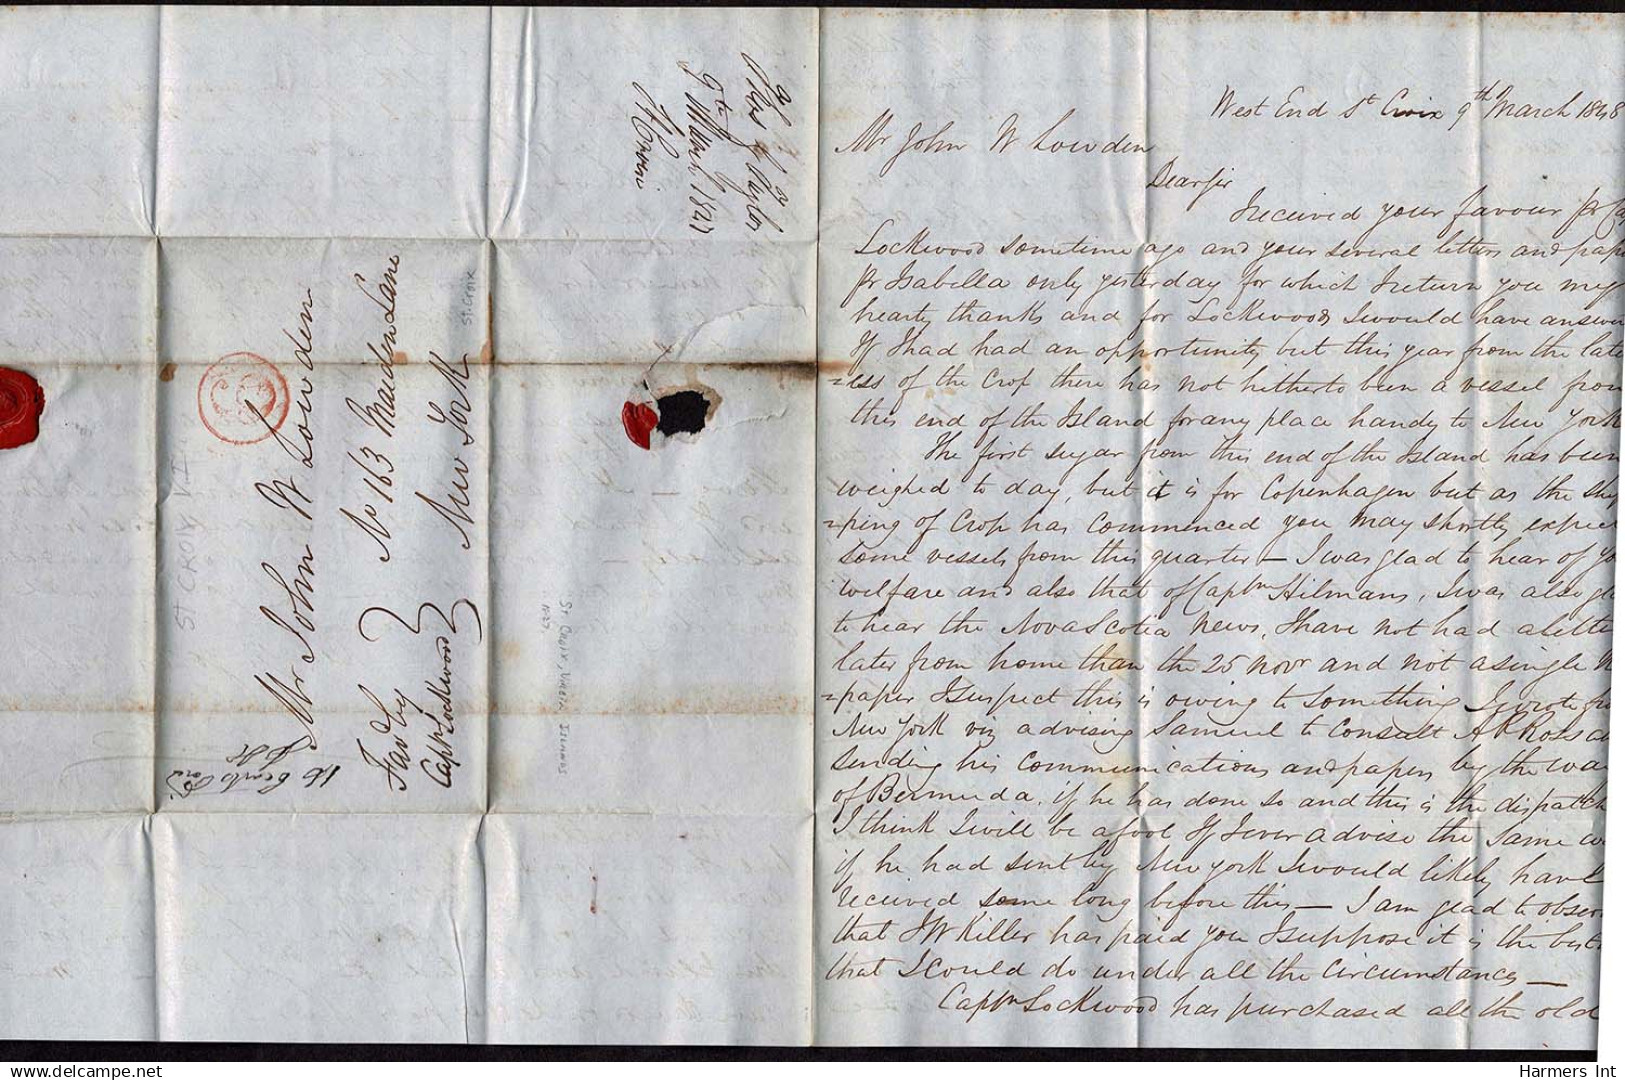 West End St Croix 9th March 1848
Mr John W Lowden
Dear sir
I received your favour pr Cap
Lockwood sometime ago and your several letters and pape
pr Isabella only yesterday for which I return you my
hearty thanks and for Lockwoods I would have answer
If I had had an opportunity but this year from the late
=ess of the Crop there has not hitherto been a vessel from
this end of the Island for any place handy to New York
The first sugar from this end of the Island has been
weighed to day, but it is for Copenhagen but as the ship
=ping of Crop has commenced you may shortly expect
some vessels from this quarter — I was glad to hear of yo
welfare and also that of Captn Hilmans, I was also gl
to hear the Nova Scotia news, I have not had a lette
later from home than the 25 Novr and not a single N
=paper I suspect this is owing to something I wrote fr
New York viz advising Samuel to consult A P Ross a
sending his communications and papers by the wa
of Bermuda, if he has done so and this is the dispatch
I think I will be a fool If I ever advise the same
if he had sent by New York I would likely have
received some long before this — I am glad to obser
that J W Killer has paid you I suppose it is the best
that I could do under all the circumstances —
Captn Lockwood has purchased all the old
9th March 1848
Mr John W Lowden
No 163 Maiden Lane
New York
Fav by
Captn Lockwood
ST. CROIX
ST CROIX V.I.
ST CROIX VIRGIN ISLANDS
Harmers Int